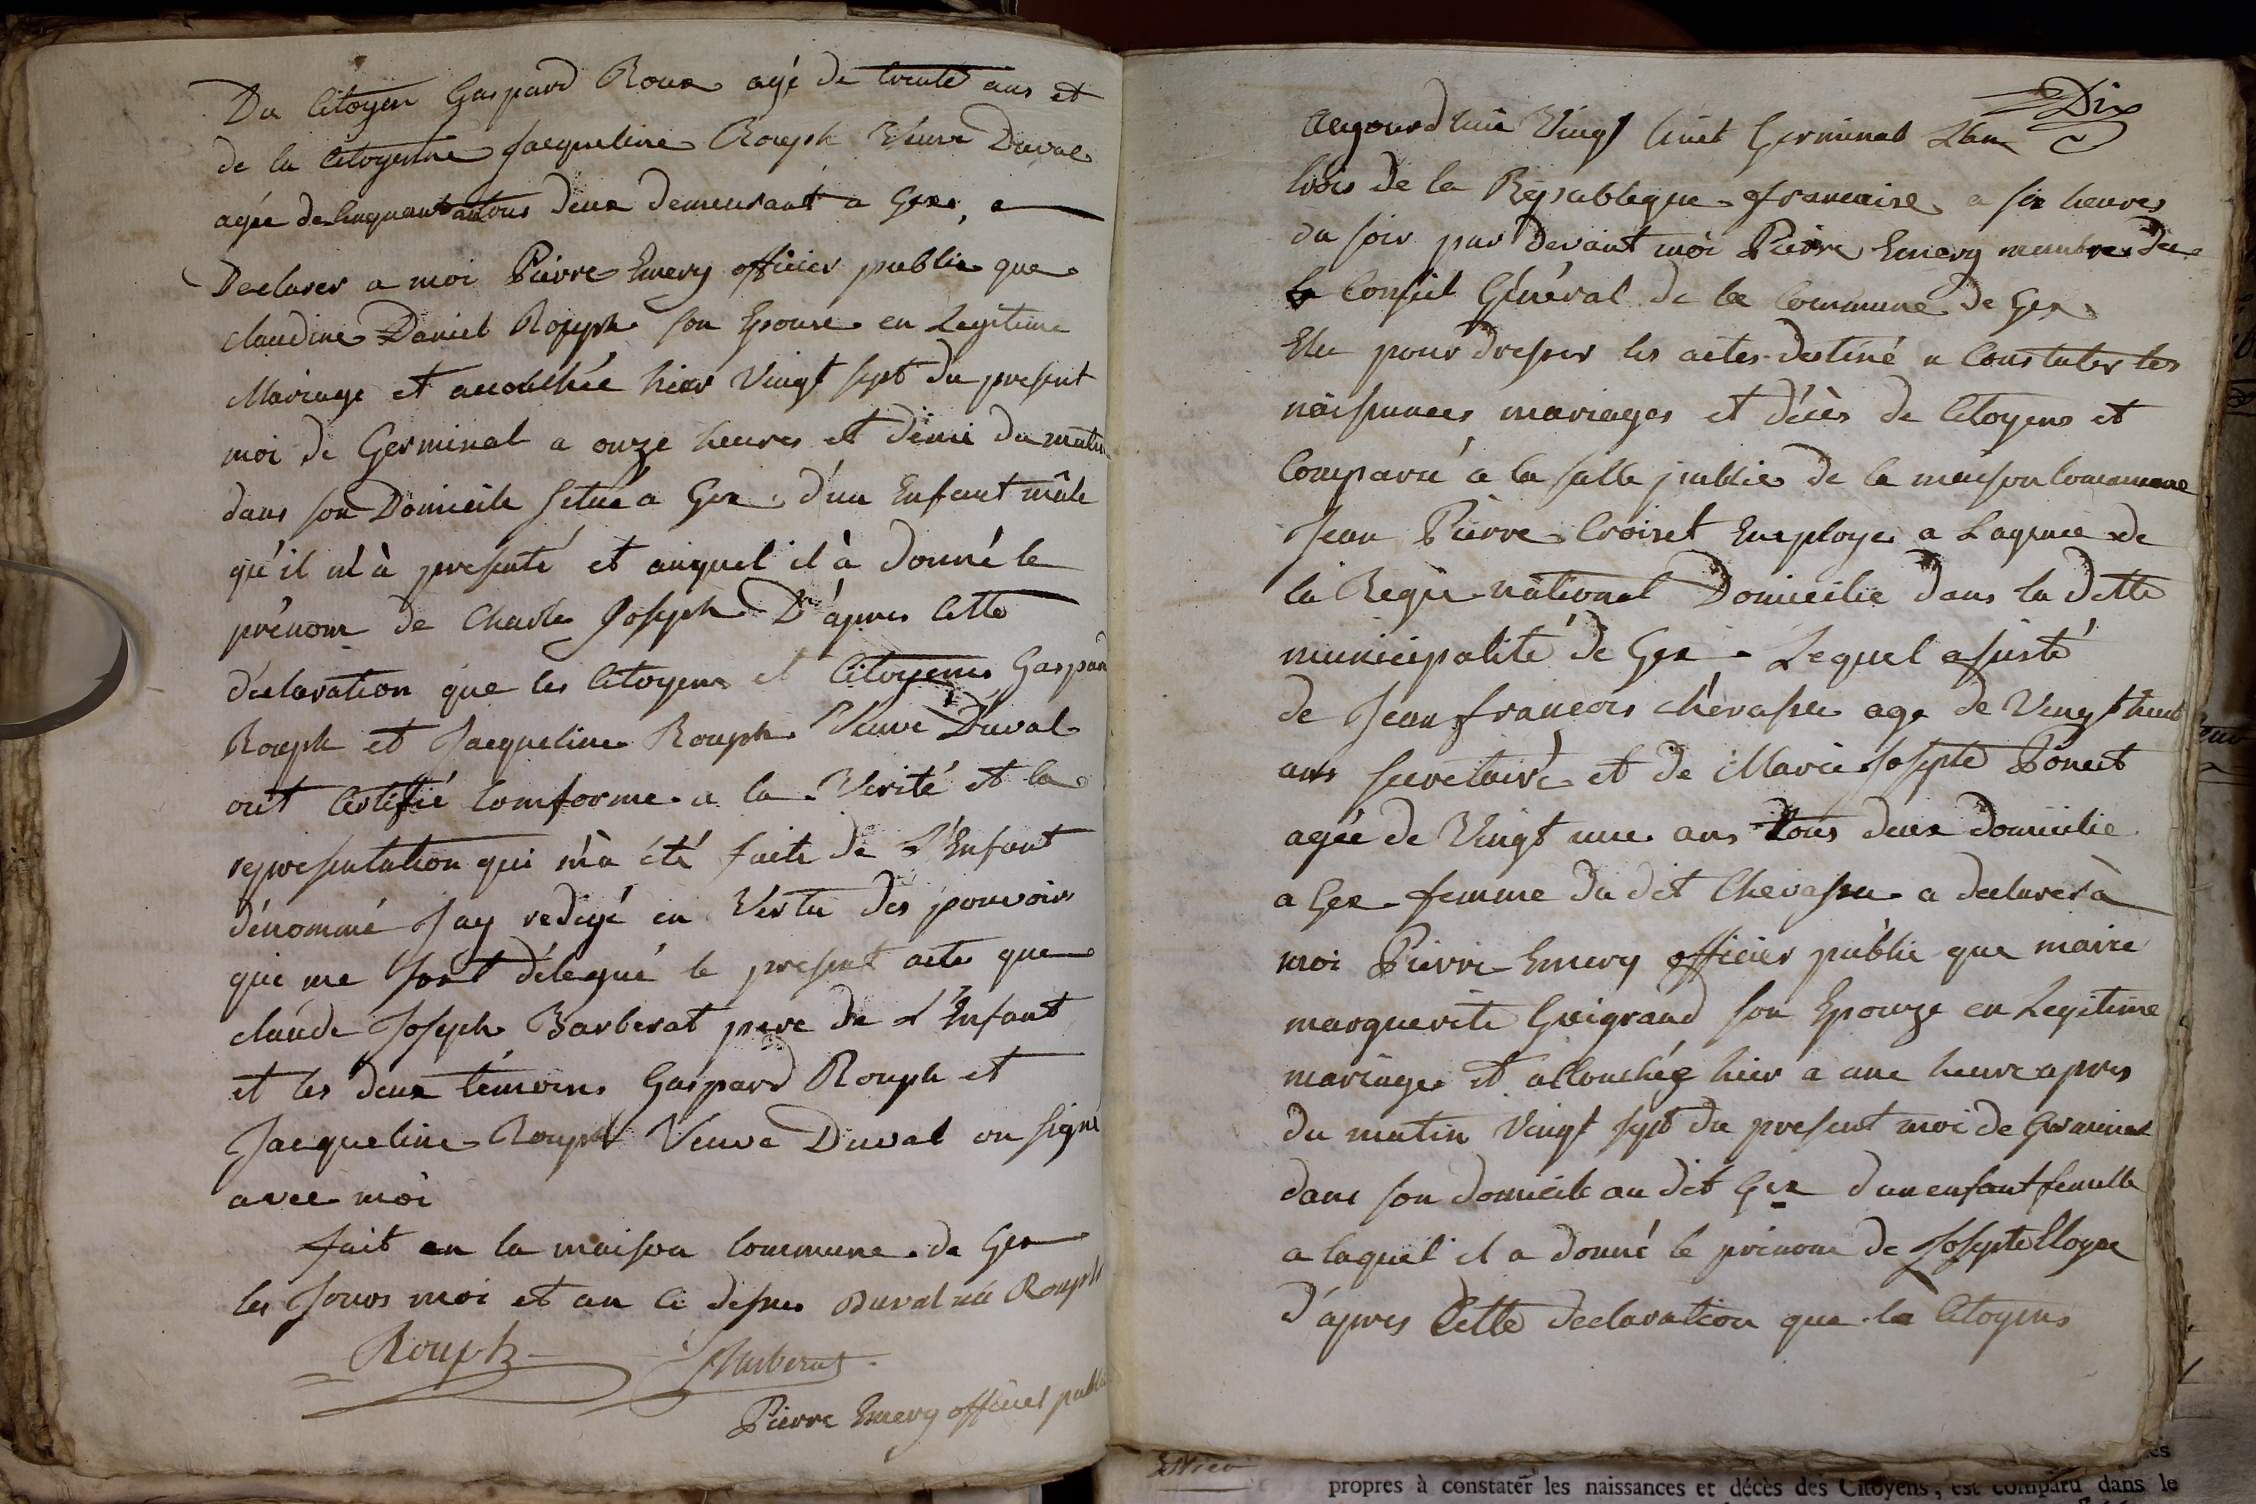 Du Citoyen Gaspard Roux agé de trente ans et
de la Citoyenne Jacqueline Rouph Veuve Duval
agée de Cinquant an tous deux demeurant a Gex, a
Declarer a moi Pierre Emery officier public que
claudine Daniel Rouph son Epouse en Legitime
Mariage et accouchée hier Vingt sept du present
moi de Germinal a onze heures et demi du matin
dans son Domicile Situé a Gex, d'un Enfant mâle
qu'il m'à presenté et auquel il à donné le
prénom de Charle Joseph D'apres Cette
déclaration que les Citoyens et Citoyenes Gaspard
Rouph et Jacqueline Rouph Veuve Duval
ont Certifié Comforme a la Verité et la
representation qui m'à été faite de L'Enfant
dénommé Jay redigé en Vertu des pouvoirs
qui me sont délegué le present acte que
claude Joseph Barberat pere de L'Enfant
et les deux témoins Gaspard Rouph et
Jacqueline Rouph Veuve Duval on signé
avec moi
fait en la maison Commune de Gex
les Jours moi et an Ci dessus Duval né Rouph
Rouph Barberat
Pierre Emery officier public
Dix
Aujourdhui Vingt huit Germinal Lan
trois de la Republique francaise a six heures
du soir par devant moi Pierre Emery membre du
Conseil Général de la Commune de Gex
Elu pour dresser les actes destiné a Constater les
naissances mariages et décès de Citoyens et
Comparu a la salle public de la maison Commune
Jean Pierre Croiset Employe a Lagence de
la Regie national Domicilie dans la ditte
municipalité de Gex Lequel assisté
de Jean francois chevassu age de Vingt huit
ans secretaire et de Marie Josephte Ponect
agée de Vingt une ans tous deux domicilie
a Gex femme du dit Chevassu a declarer à
moi Pierre Emery officier public que marie
marguerite Guigrand son Epouze en Legitime
mariage et accouchée hier a une heure apres
du matin Vingt sept du present moi de Germinal
dans son domicile au dit Gex d'un enfant femelle
a laquel il a donné le prénom de Josephte Eloyse
d'apres Cette declaration que le Citoyens
propres à constater les naissances et décès des Citoyens, est comparu dans le